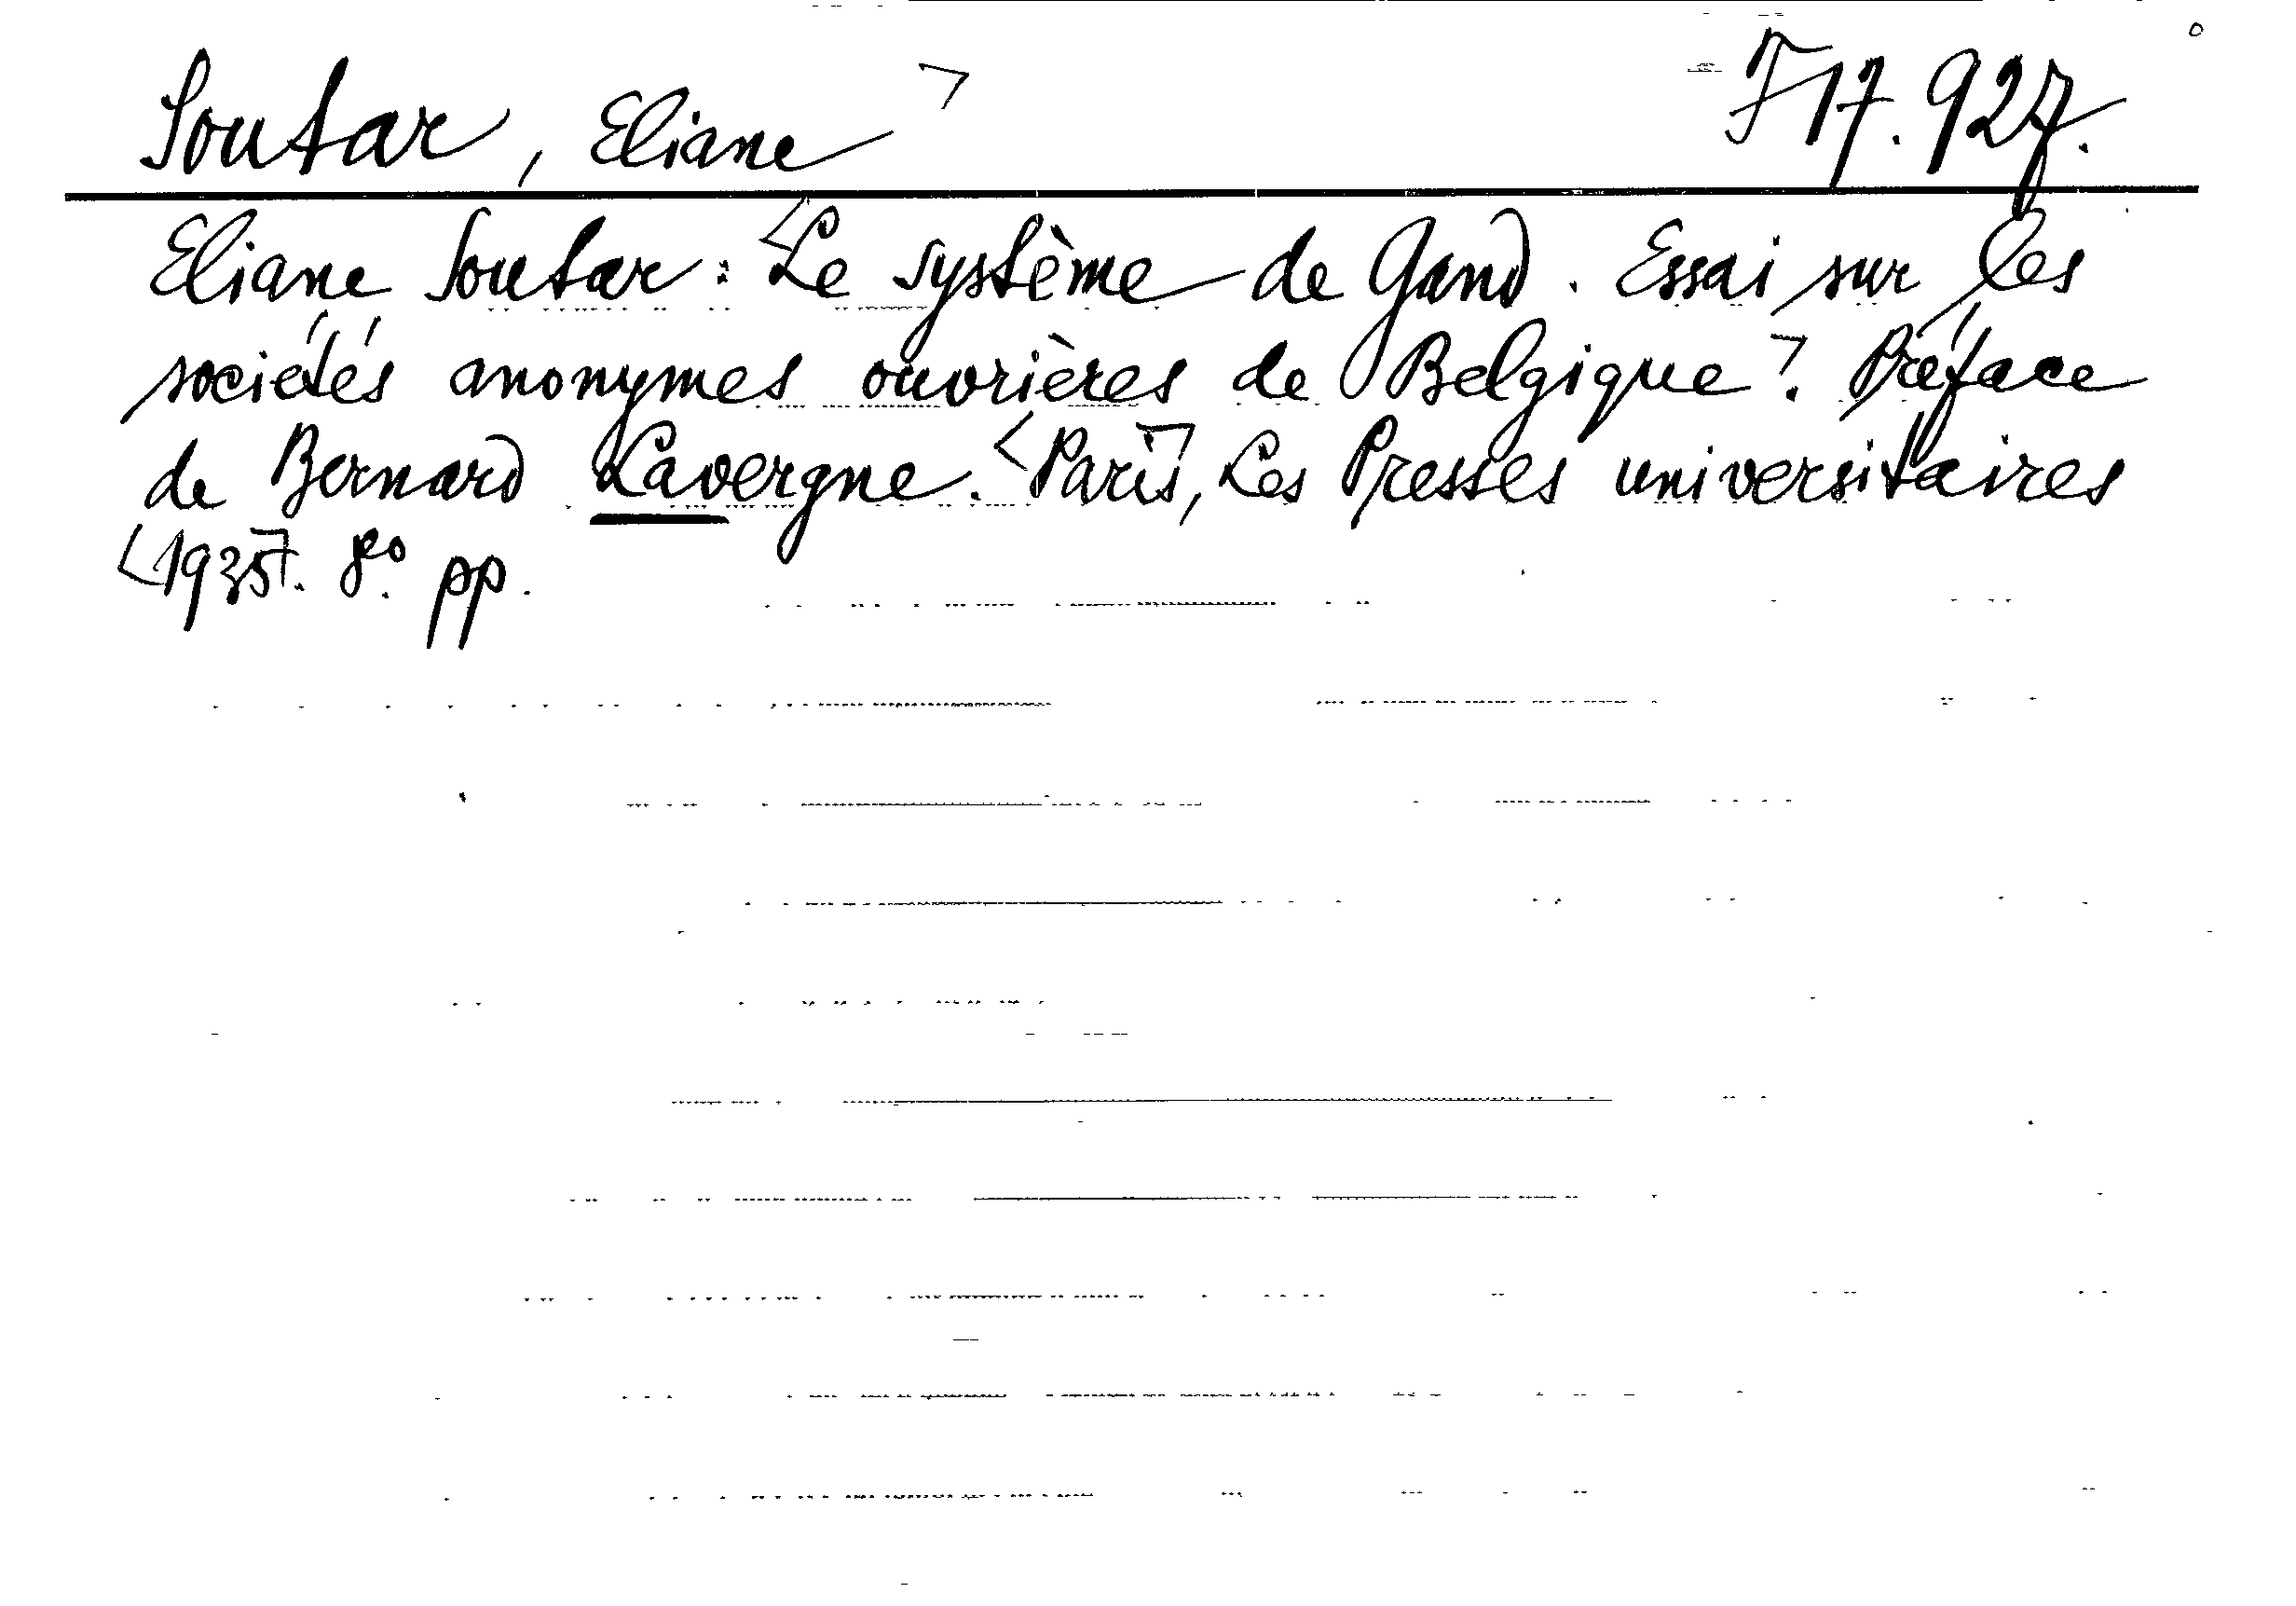 Soutar, Eliane ┐ F 17.927.
Eliane Soutar: <Le système de Gand. Essai sur les
sociétés anonymes ouvrières de Belgique┐. Préface
de Bernard Lavergne. <Paris┐, Les Presses universitaires
<1935┐. 8º. pp.